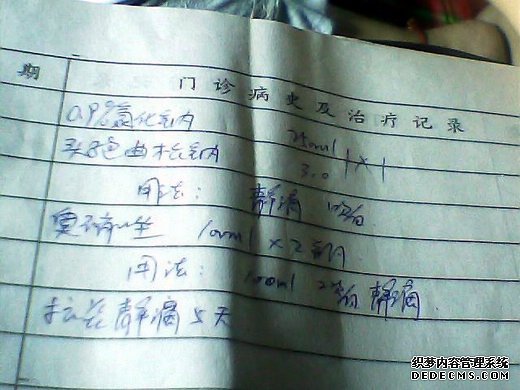 期 门诊病史及治疗记录
0.9%氯化钠 25ml
头孢曲松钠 3.0 ×1
用法: 静滴 1次/日
奥硝唑 100ml × 2瓶
用法: 100ml 2次/日 静滴
静滴5天
织梦内容管理系统
DEDECMS.COM